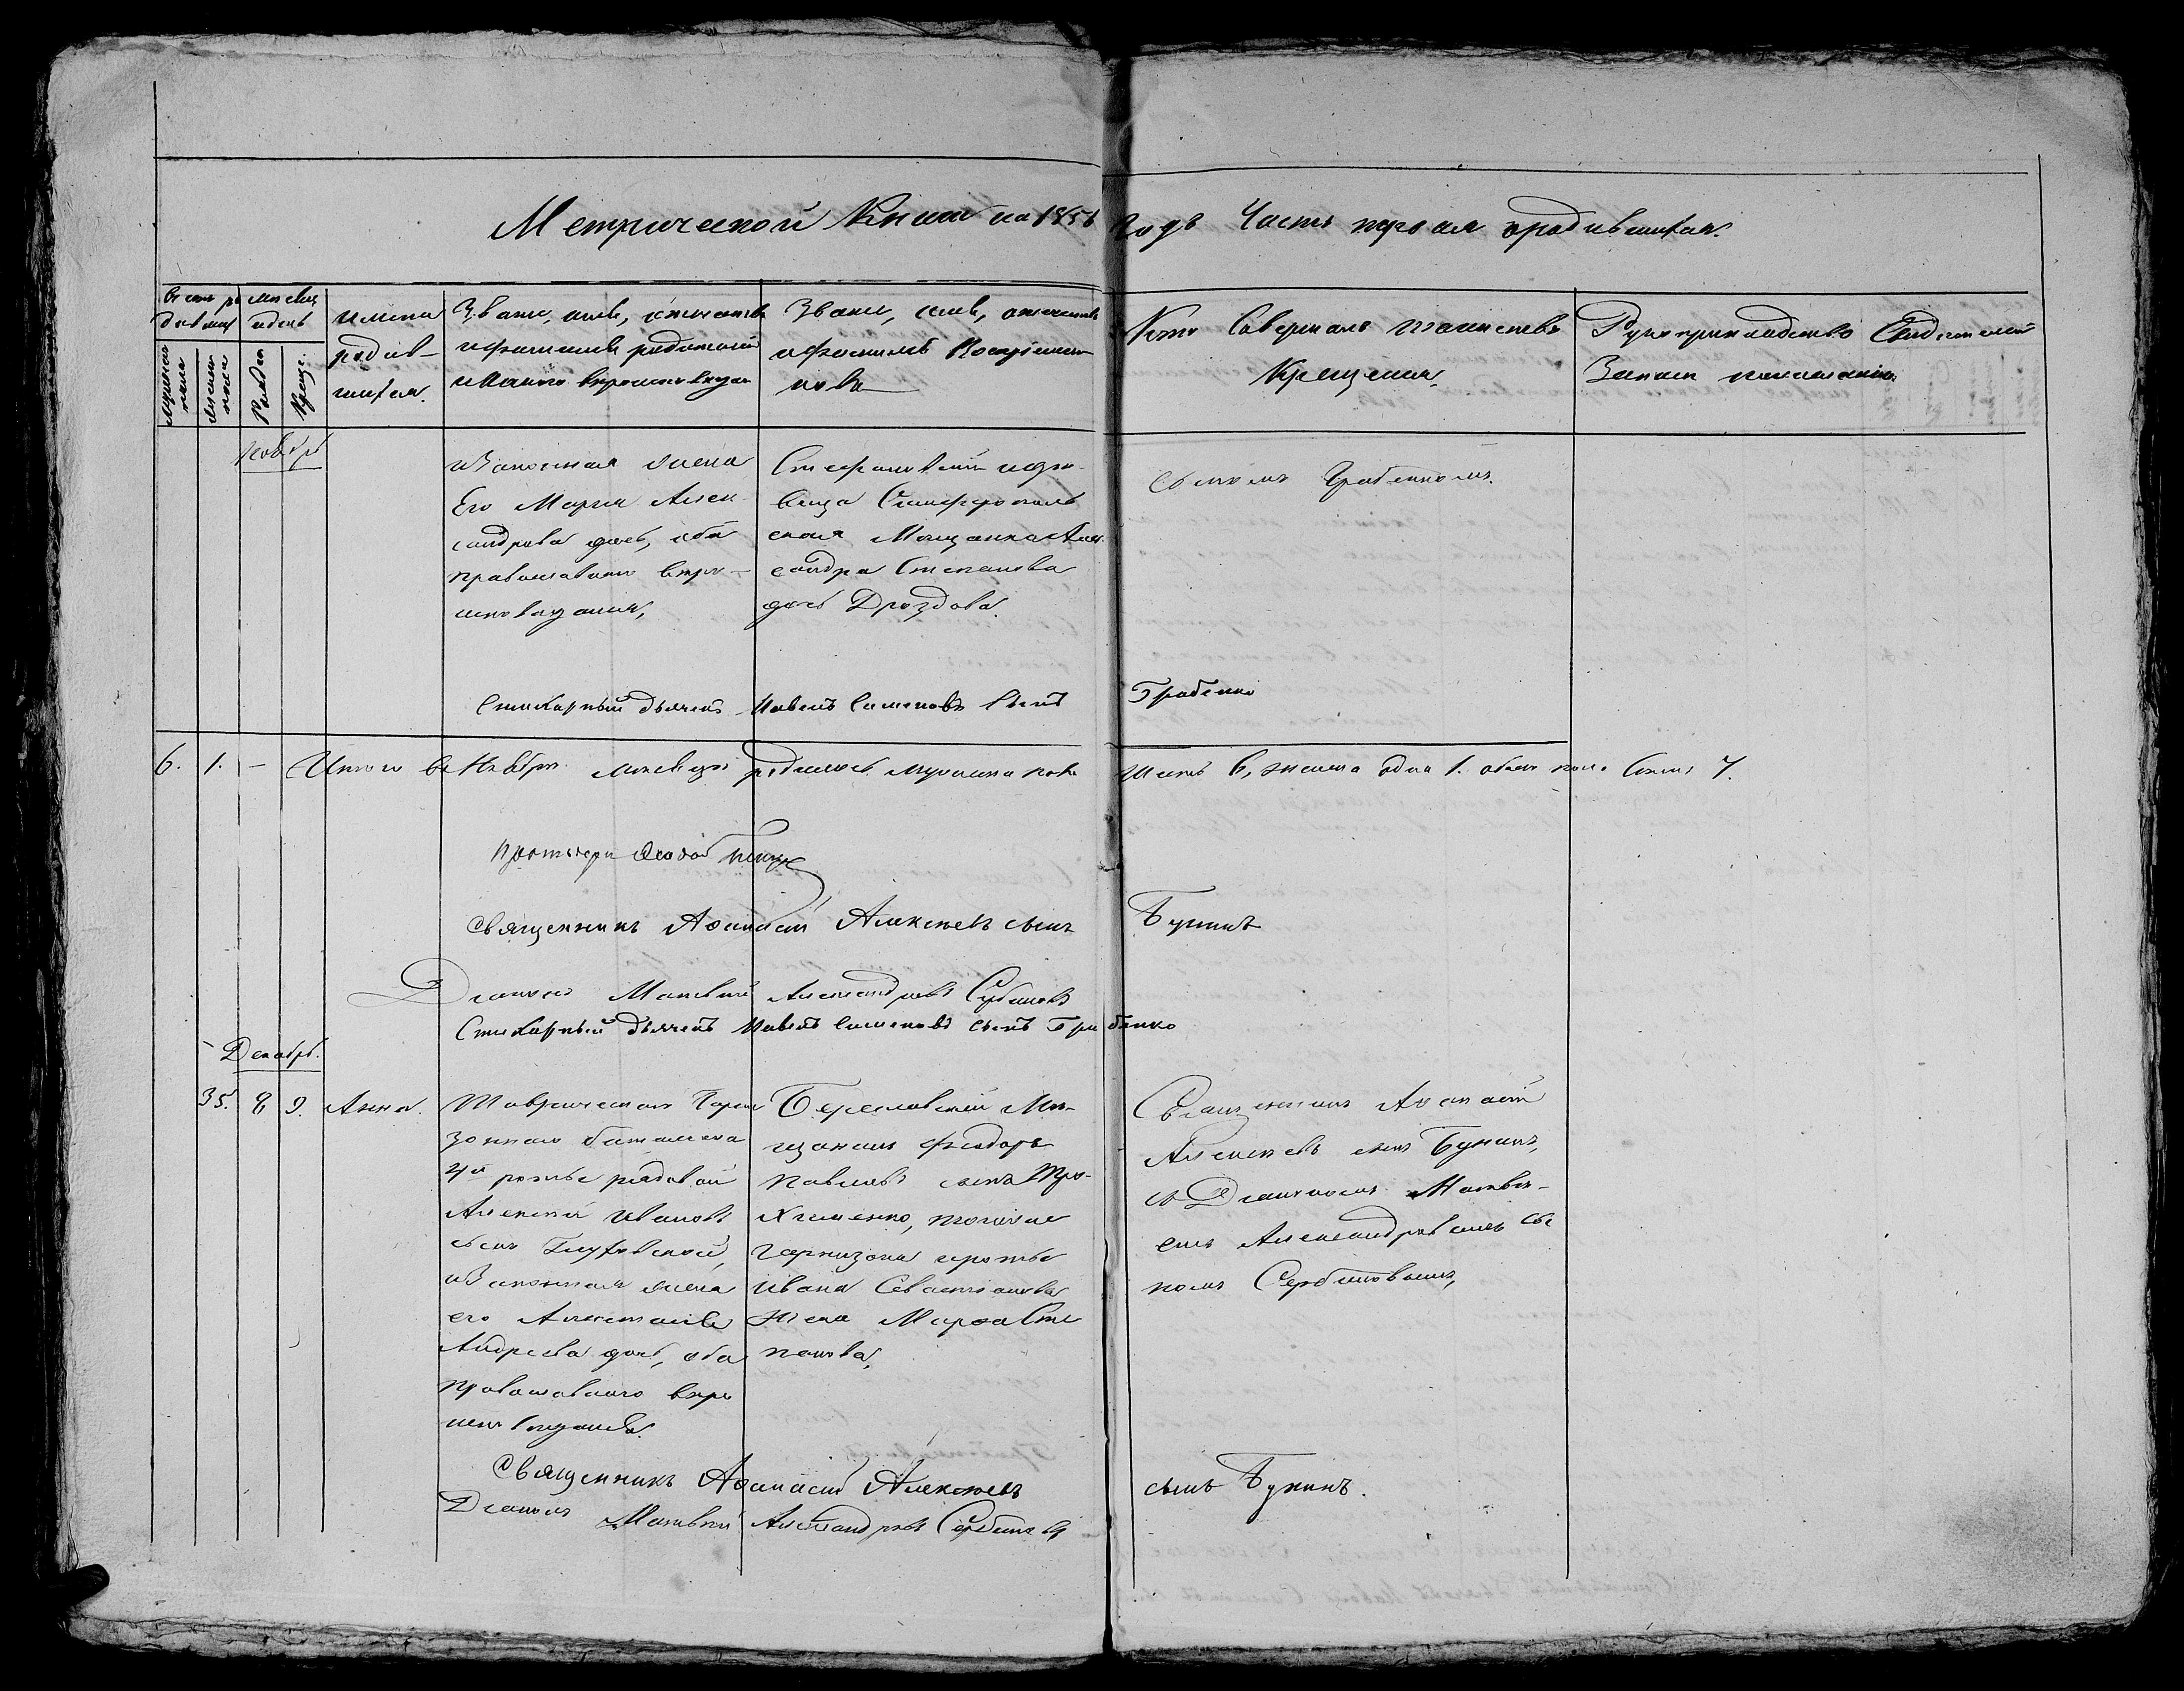 Метрической Книги на 1856 годъ Часть первая о родившихся.
мужеска пола
женска пола
Рожден
Крещ.
месяцъ и день
имена родив-
шихся.
Званіе, имя, отчество
и фамилія родителей
и какого вероисповедан
Званіе, имя, отчество
и фамилія Воспріемни-
ковъ
Кто Совершалъ таинство
Крещенія.
Рукоприкладство Свидетелей
Записи по желанію.
Ноябрь
и Законная жена
Его Марія Алек-
сандрова дочь, оба
православнаго веро-
исповеданія,
Симферополь
ская Мещанка Алек
сандра Степанова
дочь Дроздова.
Грабенкомъ.
Стихарный Дьячекъ Павелъ Симеоновъ Сынъ Грабенко
6. 1. – Итого въ Ноябре месяце родилось мужеска пола Шесть 6, женска одна 1. обоего пола Семь 7.
Протоіерей
Священникъ Афанасій Алексеевъ сынъ Бунинъ
Діаконъ Матвей Александровъ Сербиновъ
Стихарный Дьячекъ Павелъ Симеоновъ сынъ Грабенко
Декабрь.
35. 8 9. Анна.
Таврическаго Гарни
зоннаго баталіона
4й роты рядовой
Алексей Ивановъ
сынъ Глуховской,
и Законная жена
его Анастасія
Андреева дочь, оба
Православнаго веро
исповеданія.
Бериславскій Ме-
щанинъ Феодоръ
Павловъ сынъ Тро-
хименко, того же
гарнизона и роты
Ивана Севастіанова
жена Марфа Сте
панова,
Священникъ Афанасій
Алексеевъ сынъ Бунинъ,
съ Діакономъ Матве-
емъ Александровымъ сы
номъ Сербиновымъ,
Священникъ Афанасій Алексеевъ сынъ Бунинъ.
Діаконъ Матвей Александровъ Сербиновъ